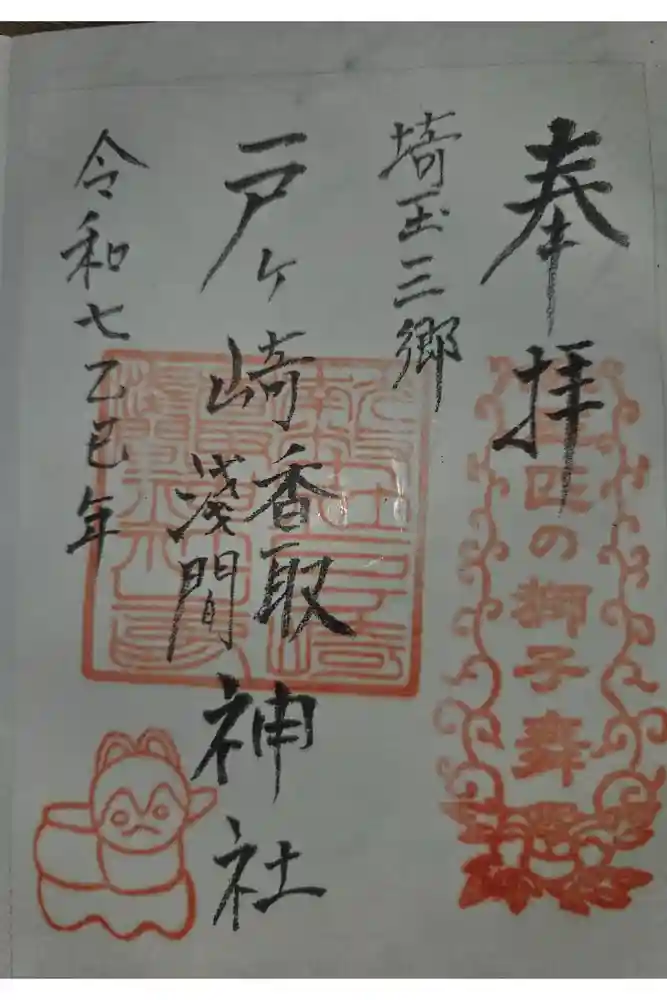 奉拝
三匹の獅子舞
埼玉三郷
戸ヶ崎香取
浅間
神社
令和七乙巳年